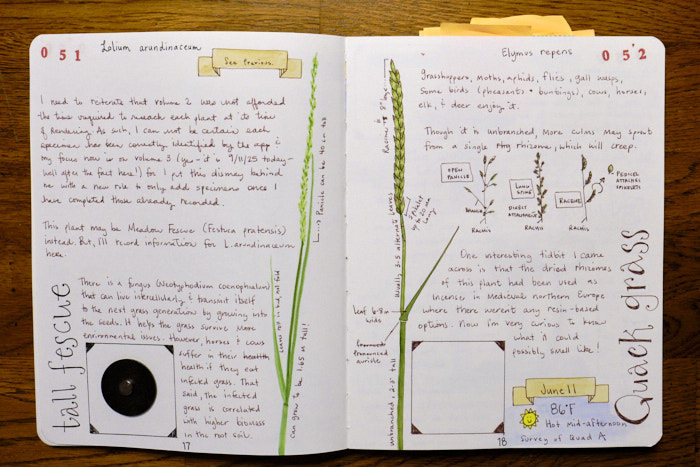 051
Lolium arundinaceum
See previous.
I need to reiterate that volume 2 was not afforded
the time required to research each plant at its time
of rendering. As such, I can not be certain each
specimen has been correctly identified by the app &
my focus now is on volume 3 (yes - it is 9/11/25 today -
well after the fact here!) for I put this dismay behind
me with a new role to only add specimens once I
have completed those already recorded.
This plant may be Meadow Fescue (Festuca pratensis)
instead. But, I'll record information for L. arundinaceum
here.
There is a fungus (Neotyphodium coenophialum)
that can live intercellularly & transmit itself
to the next grass generation by growing into
the seeds. It helps the grass survive more
environmental issues. However, horses & cows
suffer in their health
health if they eat
infected grass. That
said, the infected
grass is correlated
with higher biomass
in the root soil.
tall fescue
Panicle can be 40 cm tall
Leaves roll in bud, not fold
can grow to be 1.65 m tall!
17
Elymus repens
052
Grasshoppers, moths, aphids, flies, gall wasps,
some birds (pheasants + buntings), cows, horses,
elk, & deer enjoy it.
Though it is unbranched, more culms may sprout
from a single rhizome, which will creep.
OPEN PANICLE
BRANCH
RACHIS
LONG SPIKE
DIRECT ATTACHMENT
RACHIS
RACEME
PEDICEL ATTACHES SPIKELETS
RACHIS
Raceme is 8" long
Spikelet up to 20 mm long
Usually 3-5 alternate leaves
Leaf 6-8 mm wide
auricle
unbranched, 2-3' tall
One interesting tidbit I came
across is that the dried rhizomes
of this plant had been used as
incense in Medieval northern Europe
where there weren't any resin-based
options. Now I'm very curious to know
what it could
possibly smell like!
Quack grass
June 11
86°F
Hot mid-afternoon
Survey of Quad A
18